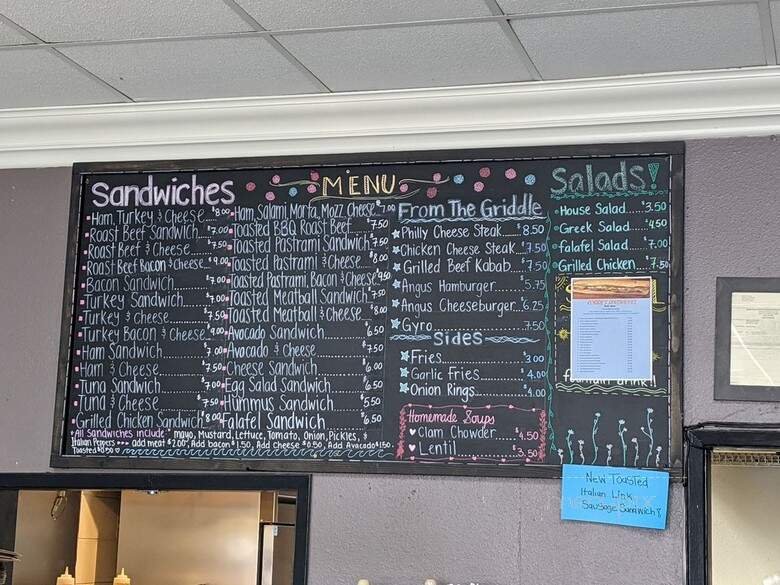 MENU
Sandwiches
Ham, Turkey & Cheese $8.00
Roast Beef Sandwich...$7.00
Roast Beef & Cheese.....7.50
Roast Beef Bacon & Cheese..$9.00
Bacon Sandwich.......$7.00
Turkey Sandwich.......$7.00
Turkey & Cheese.......$7.50
Turkey Bacon & Cheese...9.00
Ham Sandwich.......7.00
Ham & Cheese.......7.50
Tuna Sandwich.......7.00
Tuna & Cheese.......7.50
Grilled Chicken Sandwich $8.00
Ham, Salami, Morta, Mozz, Cheese..7.00
Toasted BBQ Roast Beef.....7.50
Toasted Pastrami Sandwich 7.50
Toasted Pastrami & Cheese...$8.00
Toasted Pastrami, Bacon & Cheese $9.50
Toasted Meatball Sandwich $7.50
Toasted Meatball & Cheese...$8.00
Avocado Sandwich.......6.50
Avocado & Cheese.......7.50
Cheese Sandwich.......6.00
Egg Salad Sandwich.....6.50
Hummus Sandwich.......5.50
Falafel Sandwich.......6.50
All Sandwiches include: mayo, Mustard, Lettuce, Tomato, Onion, Pickles, &
Italian Pepers add meat $2.00, Add bacon $1.50, Add Cheese $0.50, Add Avocado $1.50
Toasted $0.50
From The Griddle
Philly Cheese Steak...$8.50
Chicken Cheese Steak..7.50
Grilled Beef Kabab...7.50
Angus Hamburger.......5.75
Angus Cheeseburger..$6.25
Gyro.......7.50
Sides
Fries.......3.00
Garlic Fries.......4.00
Onion Rings.......4.00
Homemade Soups
Clam Chowder...$4.50
Lentil.......$3.50
Salads!
House Salad....$3.50
Greek Salad....4.50
falafel Salad...7.00
Grilled Chicken..$7.50
fountain drink!!
New Toasted
Italian Link
Sausage Sandwich!